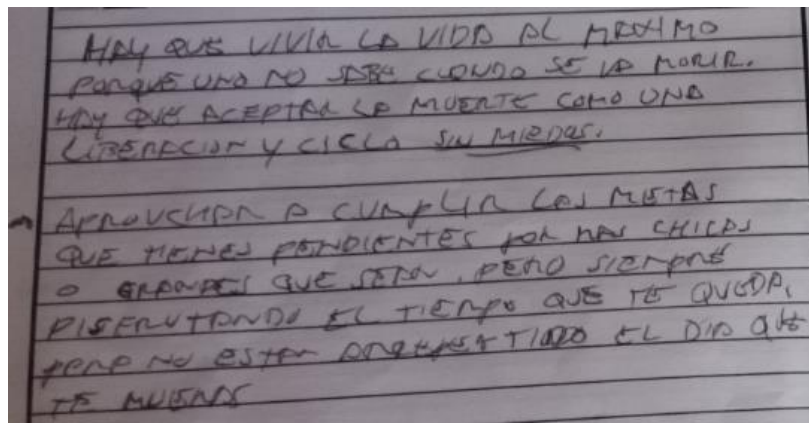 HAY QUE VIVIR LA VIDA AL MAXIMO
PORQUE UNO NO SABE CUANDO SE VA MORIR.
HAY QUE ACEPTAR LA MUERTE COMO UNA
LIBERACION Y CICLO SIN MIEDOS.
APROVECHAR A CUMPLIR LAS METAS
QUE TIENES PENDIENTES POR MAS CHICAS
O GRANDES QUE SEAN, PERO SIEMPRE
DISFRUTANDO EL TIEMPO QUE TE QUEDA,
PARA NO ESTAR EL DIA QUE
TE MUERAS